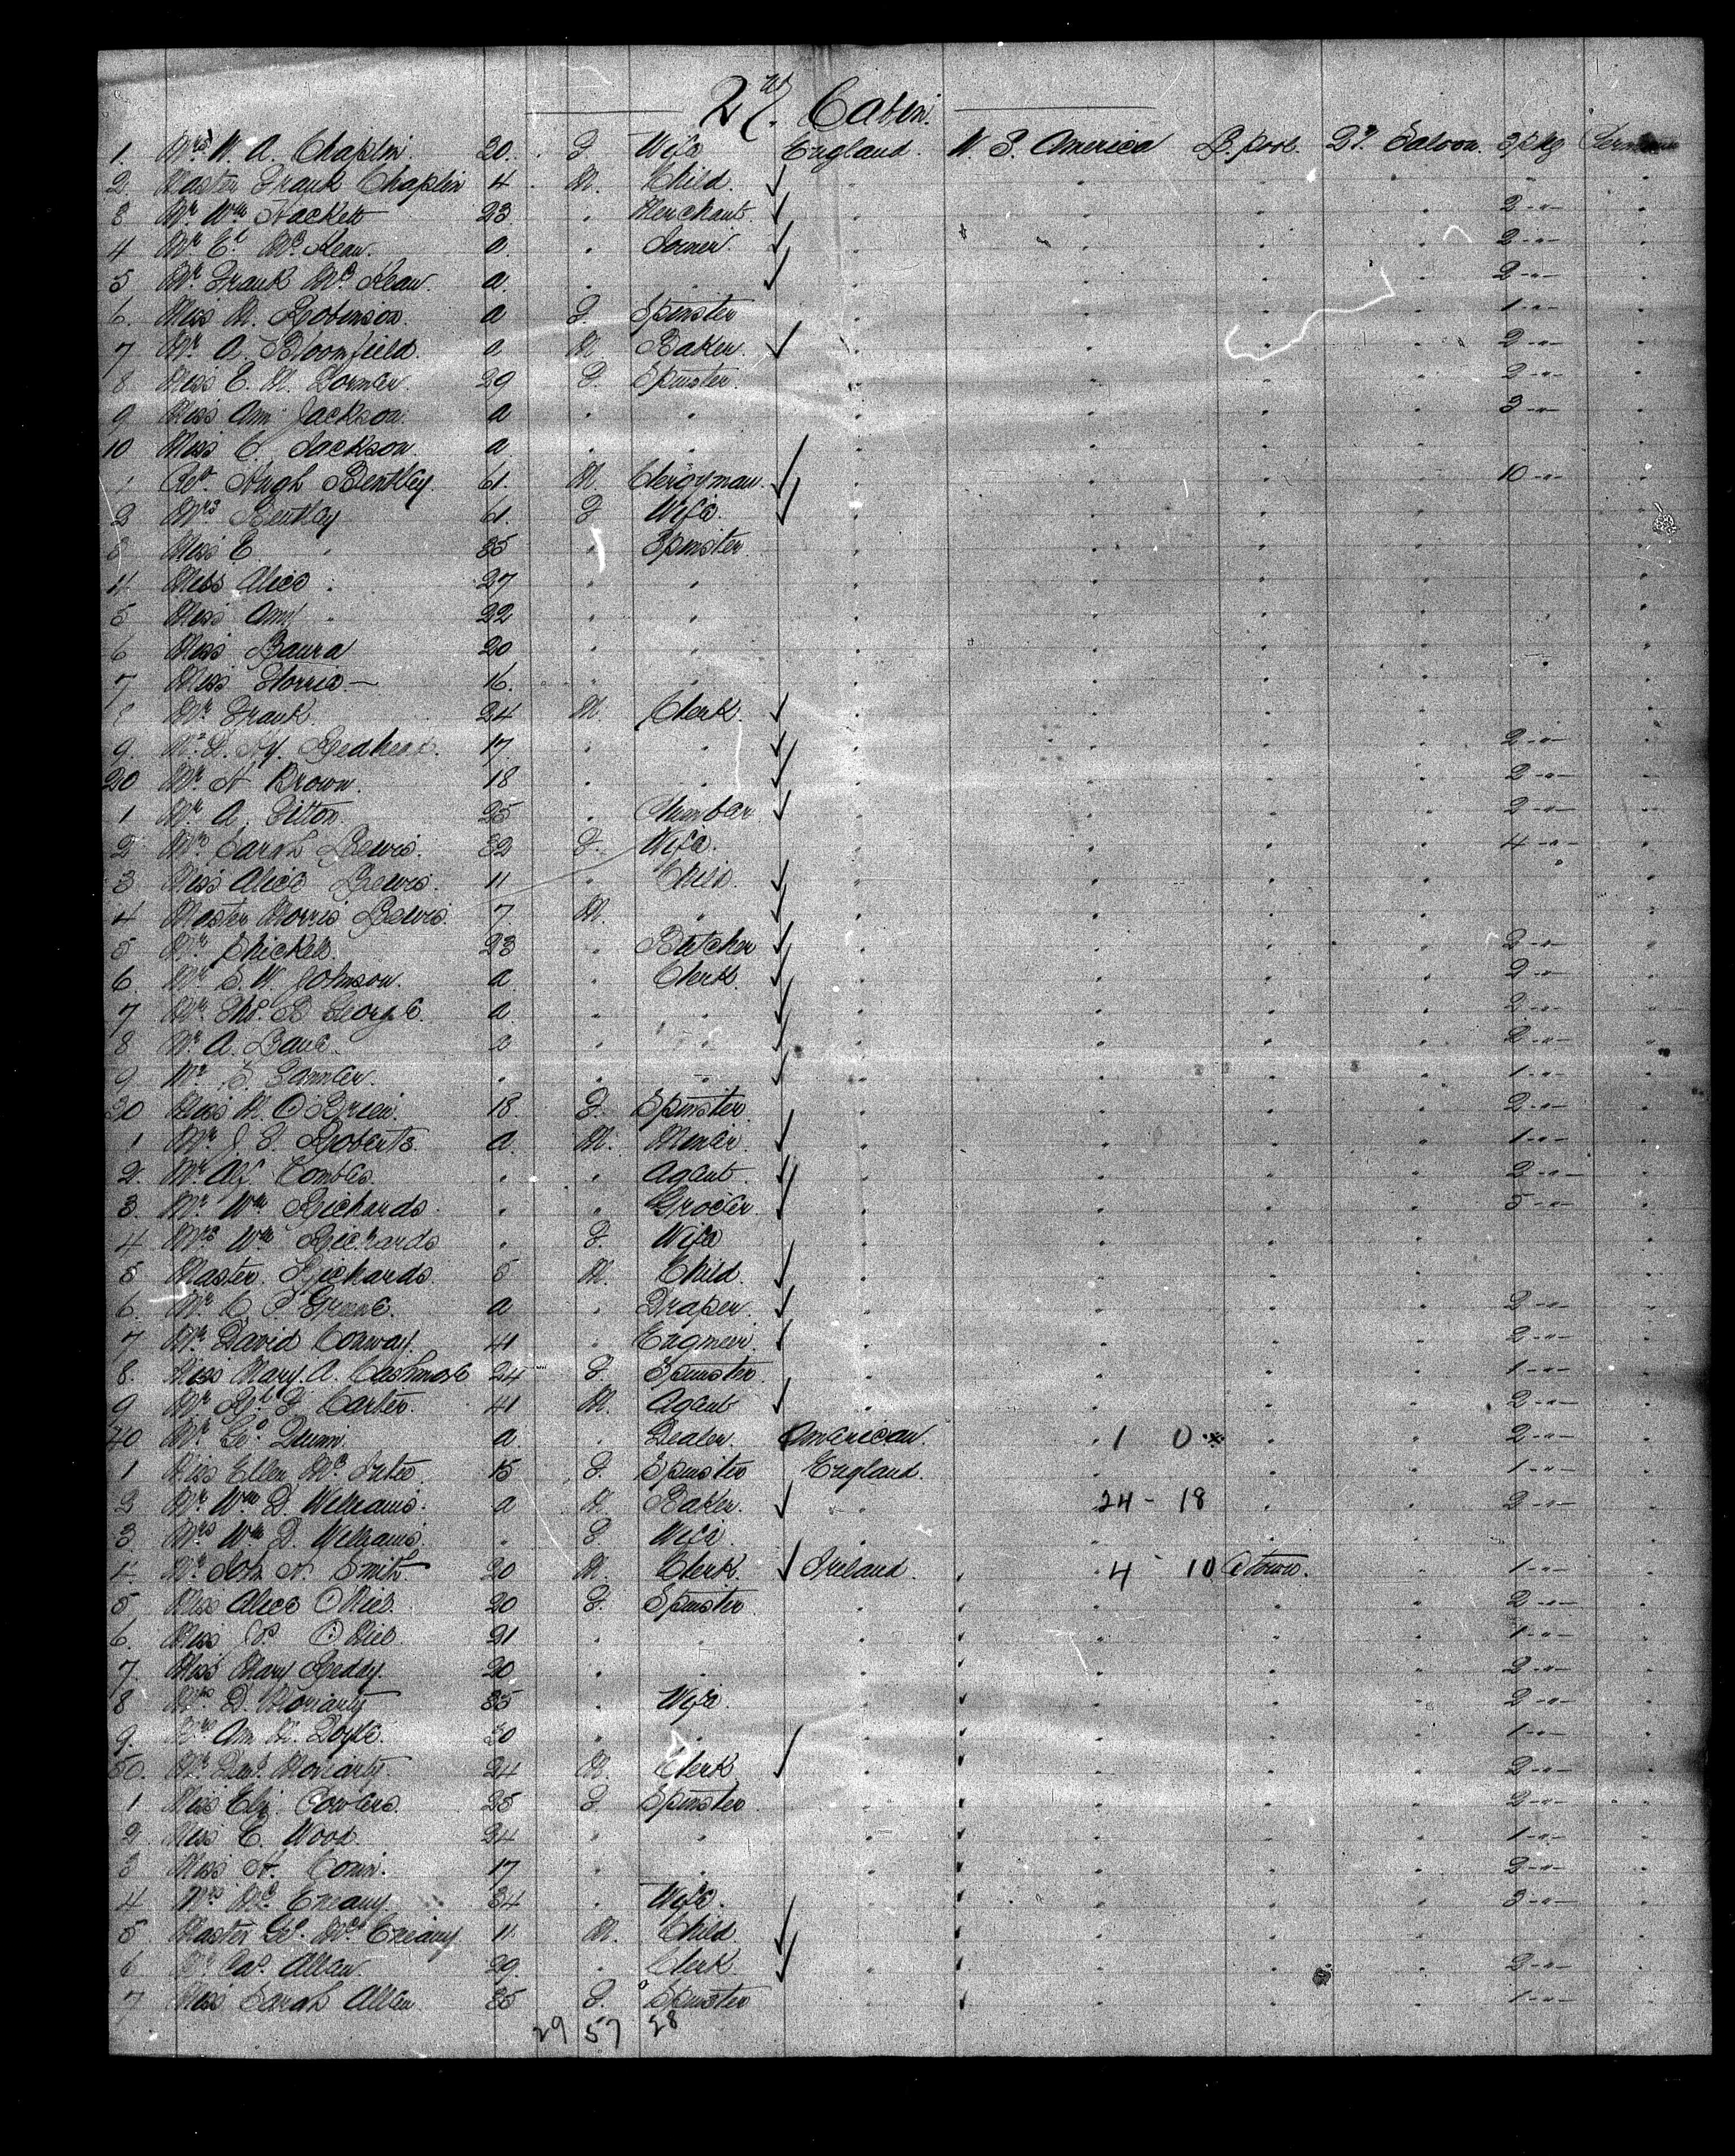 2nd Cabin.
1. Mrs W. A. Chaplin 30. F Wife England. U. S. America L.pool. 2d. Saloon. 3 pkg
2 Master Frank Chaplin 4 M. Child.
3 Mr Wm Hackett 23 " Merchant 2 - " -
4 Mr Ed. McKean. a " 2 - " -
5 Mr Frank McKean. a " 2 - " -
6. Miss M. Robinson. a F. Spinster 1 - " -
7 Mr A. Bloomfield. a M Baker. 2 - " -
8 Miss E. M. Dorman. 29 F. Spinster. 2 - " -
9 Miss Ann Jackson. a " " 3 - " -
10 Miss C. Jackson. a " "
1 Rev. Hugh Bentley. 61. M Clergyman. 10 - " -
2 Mrs Bentley 61. F Wife.
3 Miss E " 35 " Spinster
4 Miss Alice " 27 " "
5 Miss Ann " 22 " "
6 Miss Laura 20 " "
7 Miss Florrie 16. " "
8 Mr Frank 24 M. Clerk.
9. Mr D. Hy. Redhead. 17 " " 2 - " -
20 Mr H Brown. 18 " " 2 - " -
1 Mr A. Fitton. 25 " 2 - " -
2 Mrs Sarah Lewis. 32 F. Wife. 4 - " -
3 Miss Alice Lewis. 11 " Child.
4 Master Morris Lewis. 7 M. "
5 Mr Shickell. 23 " Butcher 2 - " -
6. Mr S. W. Johnson. a " Clerk. 2 - " -
7 Mr Thos. B George. a " " 2 - " -
8 Mr A. a " " 2 - " -
9 Mr " " " 1 - " -
30 Miss M. O'Brien. 18. F. Spinster 2 - " -
1 Mr J. S. Roberts. a. M. Miner. 1 - " -
2. Mr Alf. Combes. " " Agent. 2 - " -
3. Mr Wm Richards. " " Grocer. 5 - " -
4 Mrs Wm Richards " F. Wife
5 Master. Richards. 5 M. Child.
6. Mr C. P. Greene. a " Draper. 2 - " -
7 Mr David Conway. 41 " Engineer. 2 - " -
8. Miss Mary. A. Cashmore 24 F Spinster. 1 - " -
9 Mr Rbt F Carter. 41 M. Agent 2 - " -
40 Mr Geo. Dunn. a. " Dealer. American. 1 0 2 - " -
1 Miss Ellen 15 F. Spinster England. 1 - " -
2 Mr Wm D. Williams. a M Baker. 24 - 18 2 - " -
3 Mrs Wm D. Williams. " F. Wife
4 Mr John N. Smith 20 M. Clerk. Ireland. 4 10 Q town. 1 - " -
5 Miss Alice O'Neil. 20 F. Spinster. 2 - " -
6. Miss O'Neil 21 " " 1 - " -
7. Miss Mary Reddy. 20 " " 2 - " -
8 Mrs D. Moriarty 35 " Wife 2 - " -
9. Mrs Ann M. Doyle. 30 " " 1 - " -
50. Mr Moriarty. 24 M. Clerk 2 - " -
1 Miss Eliz. 25 F Spinster 2 - " -
2 Miss C. Wood. 24 " " 1 - " -
3 Miss H. 17 " " 2 - " -
4 Mrs McCreary. 34 " Wife. 3 - " -
5 Master Geo. McCreary 11 M. Child
6 Mr Allen. 29. " Clerk. 2 - " -
7 Miss Sarah Allen 35 F. Spinster 1 - " -
29 57 28